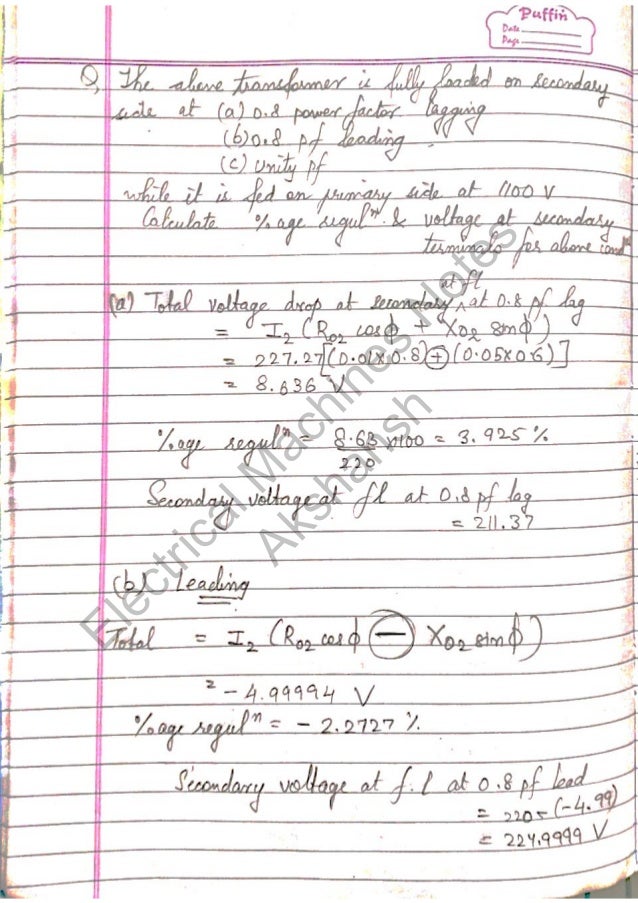 Puffin
Date
Page
Q, The above transformer is fully loaded on secondary
side at (a) 0.8 power factor lagging
(b) 0.8 pf leading
(c) unity pf
while it is fed on primary side at 1100 V
Calculate %age regulⁿ & voltage at secondary
terminals for above condⁿ
at fl
(a) Total voltage drop at secondary ^ at 0.8 pf lag
= I₂ (R₀₂ cosϕ + X₀₂ sinϕ)
= 227.27[(0.01x0.8)+(0.05x0.6)]
= 8.636 V
%age regulⁿ = 8.63/220 x100 = 3.925 %
Secondary voltage at fl at 0.8 pf lag
= 211.37
(b) Leading
Total = I₂ (R₀₂ cosϕ - X₀₂ sinϕ)
= -4.99994 V
%age regulⁿ = -2.2727 %
Secondary voltage at f.l at 0.8 pf lead
= 220-(-4.99)
= 224.9999 V
Electrical Machines Notes
Akshansh